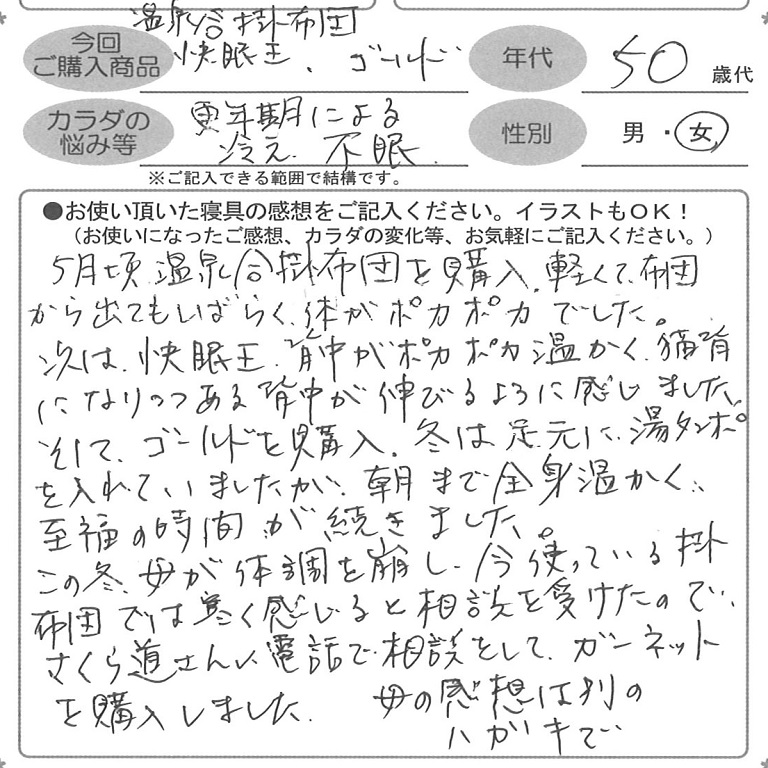 今回
ご購入商品
温泉谷掛布団
快眠王、ゴールド
年代
50歳代
カラダの
悩み等
更年期による
冷え、不眠、
性別
男・女
※ご記入できる範囲で結構です。
●お使い頂いた寝具の感想をご記入ください。イラストもOK！
（お使いになったご感想、カラダの変化等、お気軽にご記入ください。）
5月頃温泉谷掛布団を購入、軽くて、布団
から出てもしばらく、体がポカポカでした。
次は、快眠王、背中がポカポカ温かく、猫背
になりつつある背中が伸びるように感じました。
そして、ゴールドを購入。冬は足元に、湯タンポ
を入れていましたが、朝まで全身温かく、
至福の時間が続きました。
この冬、母が体調を崩し、今使っている掛
布団では寒く感じると相談を受けたので、
さくら道さんに電話で相談をして、ガーネット
を購入しました。
母の感想は別の
ハガキで